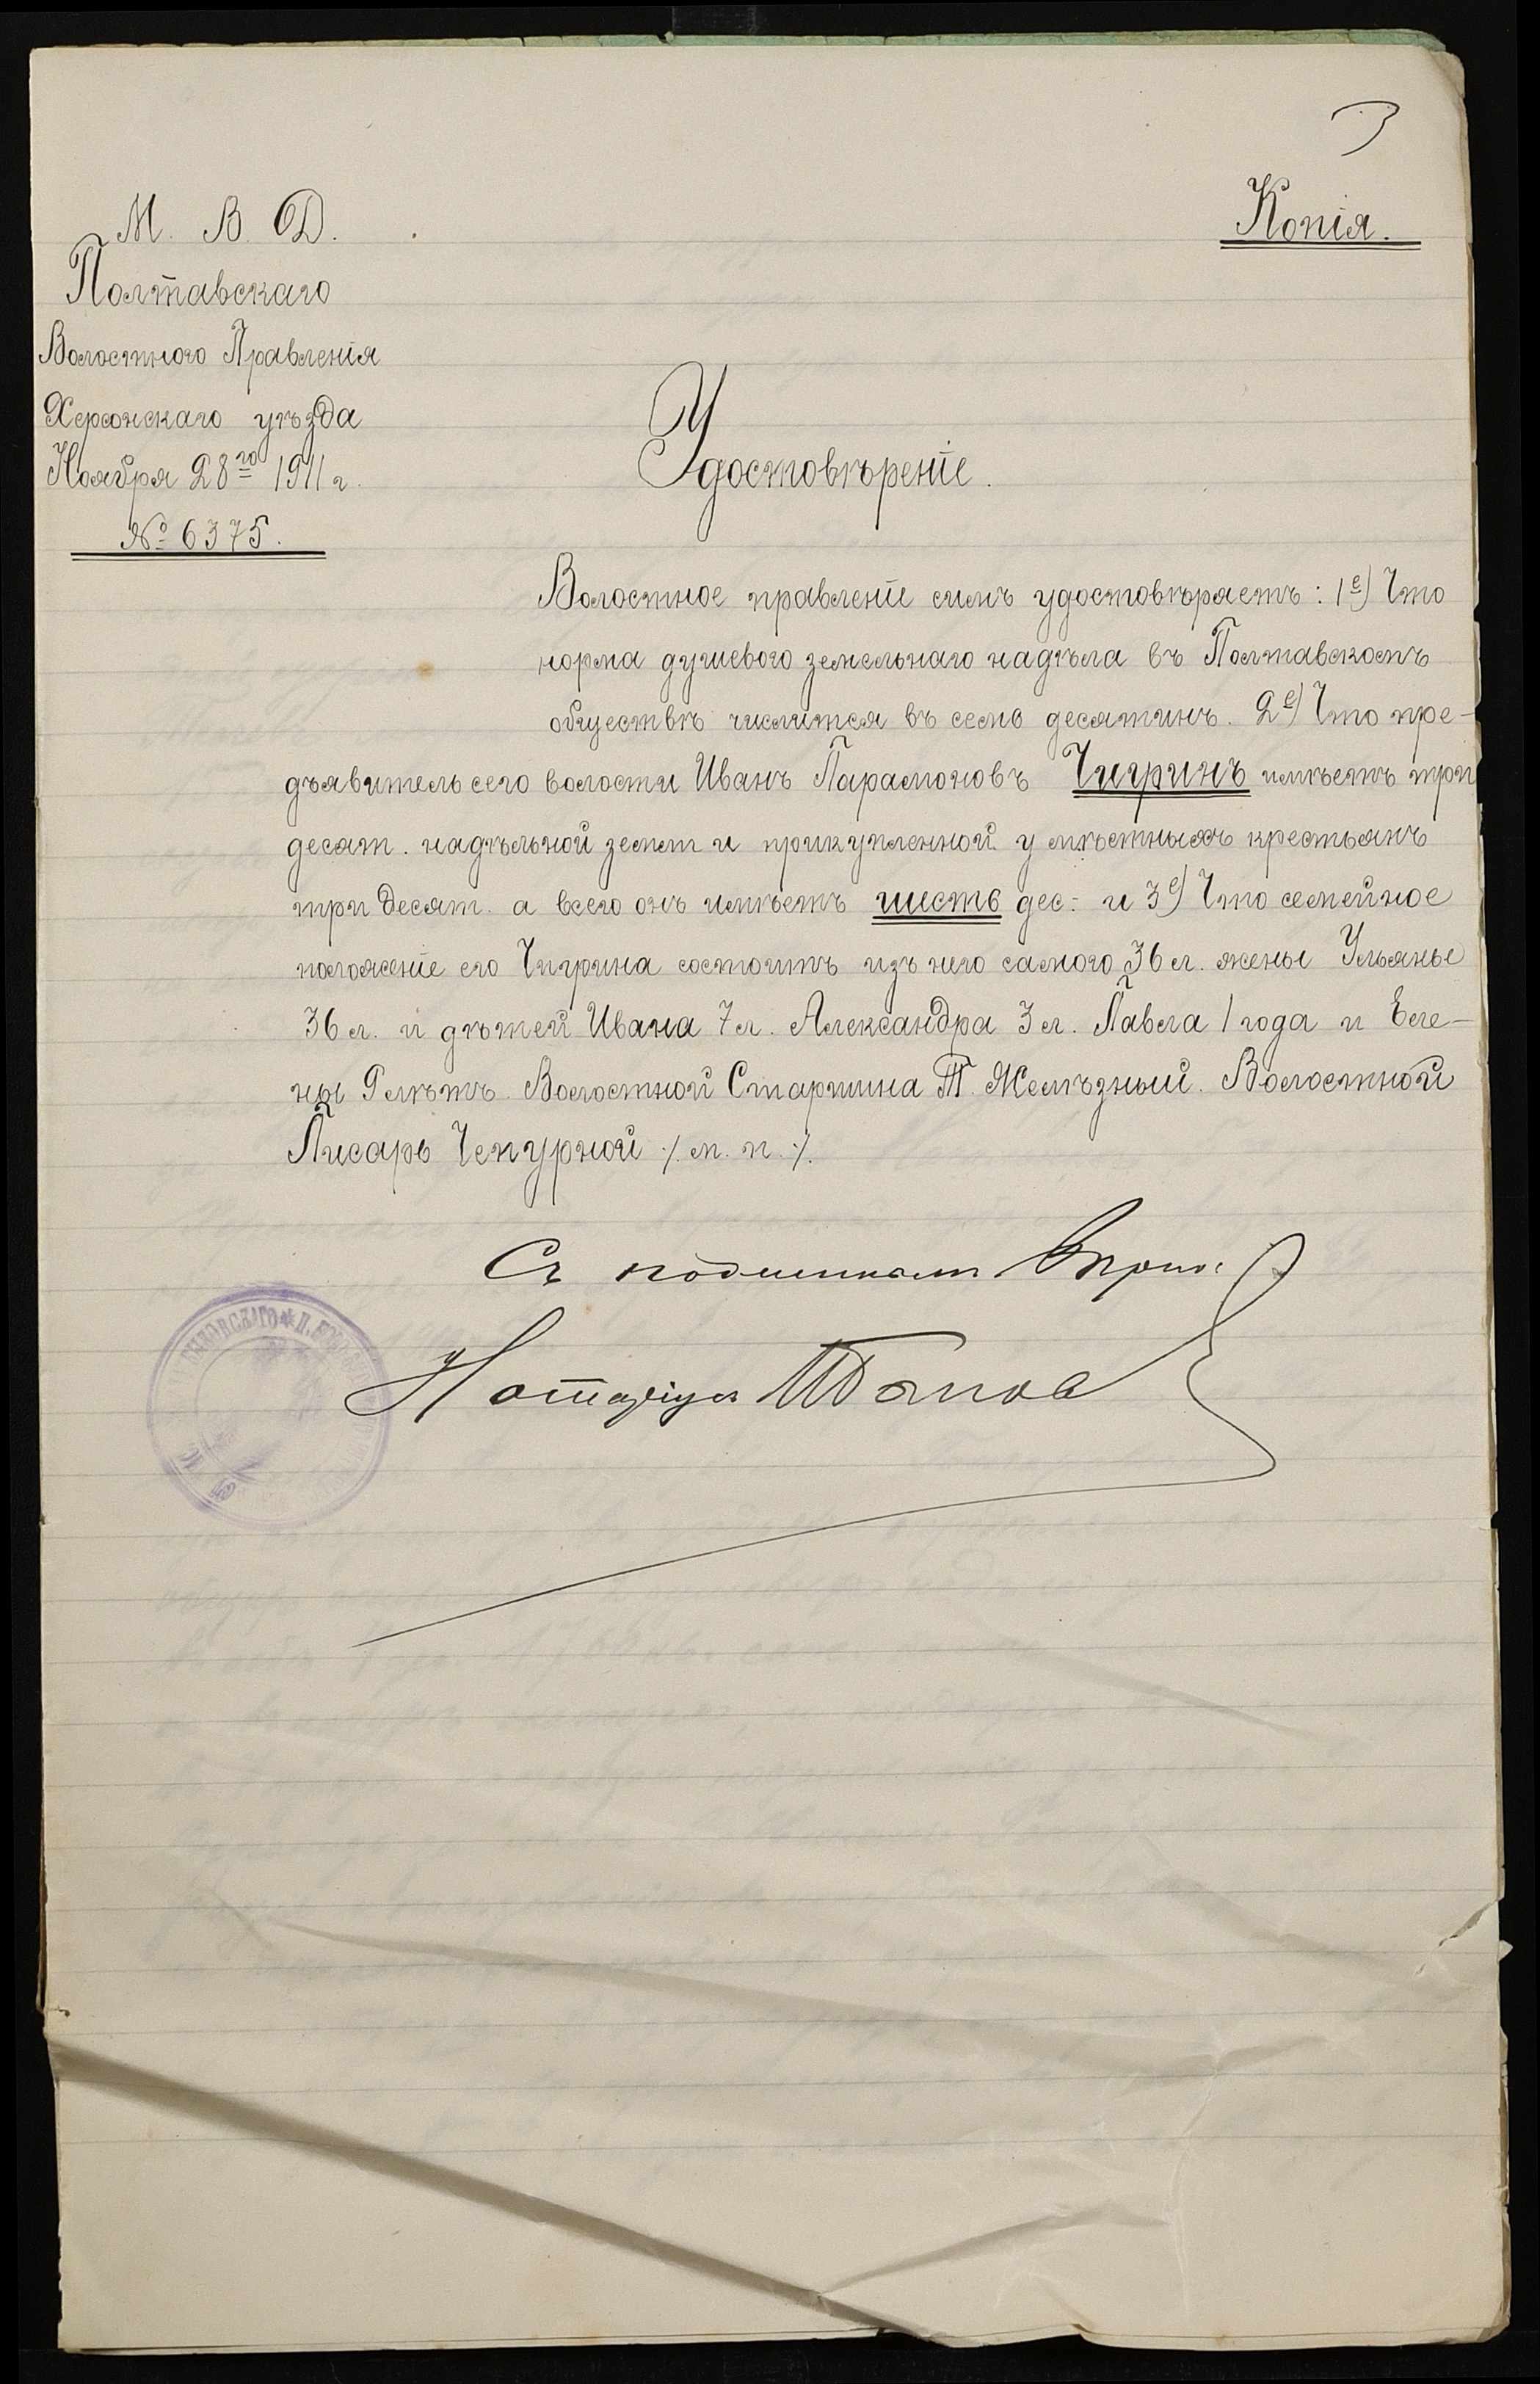 3
М. В. Д.
Копія.
Полтавскаго
Волостного Правленія
Херсонскаго уѣзда
Ноября 28го 1911 г.
№ 6375.
Удостовѣреніе.
Волостное правленіе симъ удостовѣряетъ: 1е) Что
норма душевого земельнаго надѣла въ Полтавскомъ
обществѣ числится въ семь десятинъ. 2е) Что пре-
дъявитель сего волости Иванъ Парамоновъ Чигринъ имѣетъ три
десят. надѣльной земли и прикупленной у мѣстныхъ крестьянъ
три десят. а всего онъ имѣетъ шесть дес. и 3е) Что семейное
положеніе его Чигрина состоитъ изъ него самого 36 л. жены Ульяны
36 л. и дѣтей Ивана 7 л. Александра 3 л. Павла 1 года и Еле-
ны 9 лѣтъ. Волостной Старшина Т. Желѣзный. Волостной
Писарь Чепурной /. м. п. /.
Съ подлиннымъ вѣрно:
Нотаріусъ